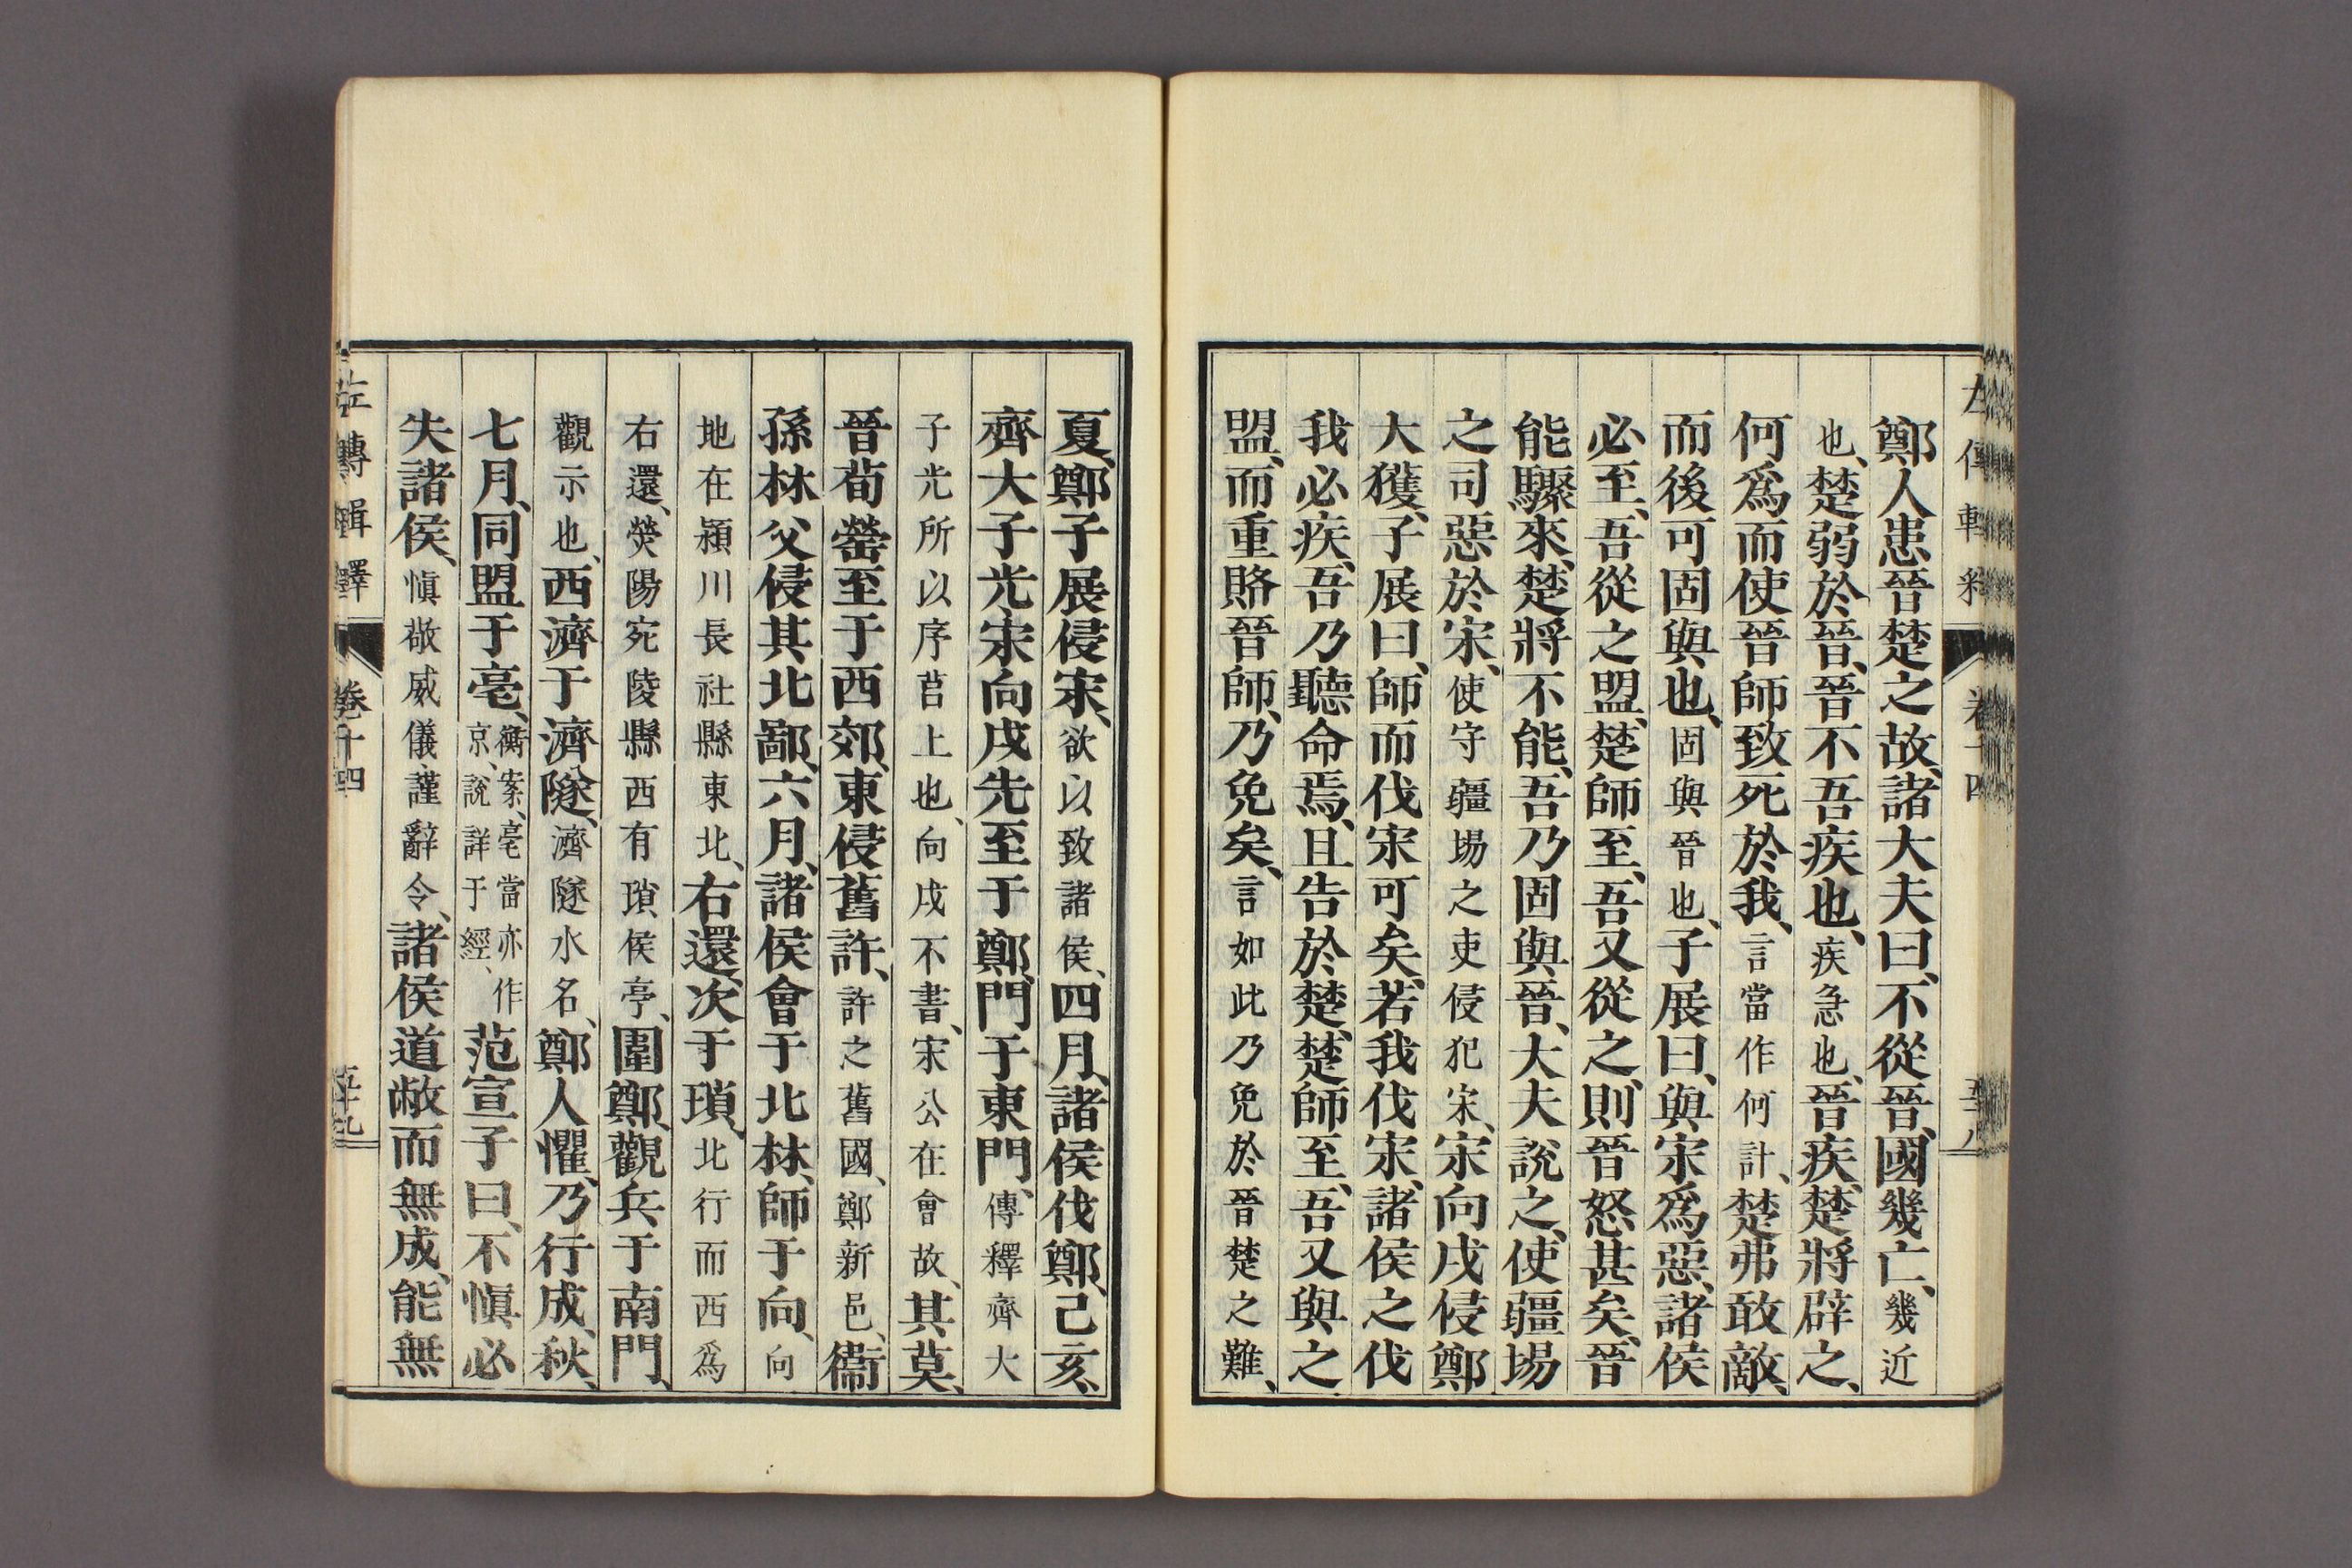 鄭人患晉楚之故、諸大夫曰、不從晉、國幾亡、幾近
也、楚弱於晉、晉不吾疾也、疾急也、晉疾、楚將辟之、
何爲而使晉師致死於我、言當作何計、楚弗敢敵、
而後可固與也、固與晉也、子展曰、與宋爲惡、諸侯
必至、吾從之盟、楚師至、吾又從之、則晉怒甚矣、晉
能驟來、楚將不能、吾乃固與晉、大夫說之、使疆場
之司惡於宋、使守疆場之吏侵犯宋、宋向戌侵鄭
大獲、子展曰、師而伐宋可矣、若我伐宋、諸侯之伐
我必疾、吾乃聽命焉、且告於楚、楚師至、吾又與之
盟、而重賂晉師、乃免矣、言如此乃免於晉楚之難、
夏、鄭子展侵宋、欲以致諸侯、四月、諸侯伐鄭、己亥、
齊大子光宋向戌先至于鄭、門于東門、傳釋齊大
子光所以序莒上也、向戌不書、宋公在會故、其莫、
晉荀罃至于西郊、東侵舊許、許之舊國、鄭新邑、衞
孫林父侵其北鄙、六月、諸侯會于北林、師于向、向
地在潁川長社縣東北、右還、次于瑣、北行而西爲
右還、熒陽宛陵縣西有瑣侯亭、圍鄭、觀兵于南門、
觀示也、西濟于濟隧、濟隧水名、鄭人懼、乃行成、秋、
七月、同盟于亳、衡案、亳當亦作京、說詳于經、范宣子曰、不愼必
失諸侯、愼敬威儀、謹辭令、諸侯道敝而無成、能無
左傳輯釋 卷十四